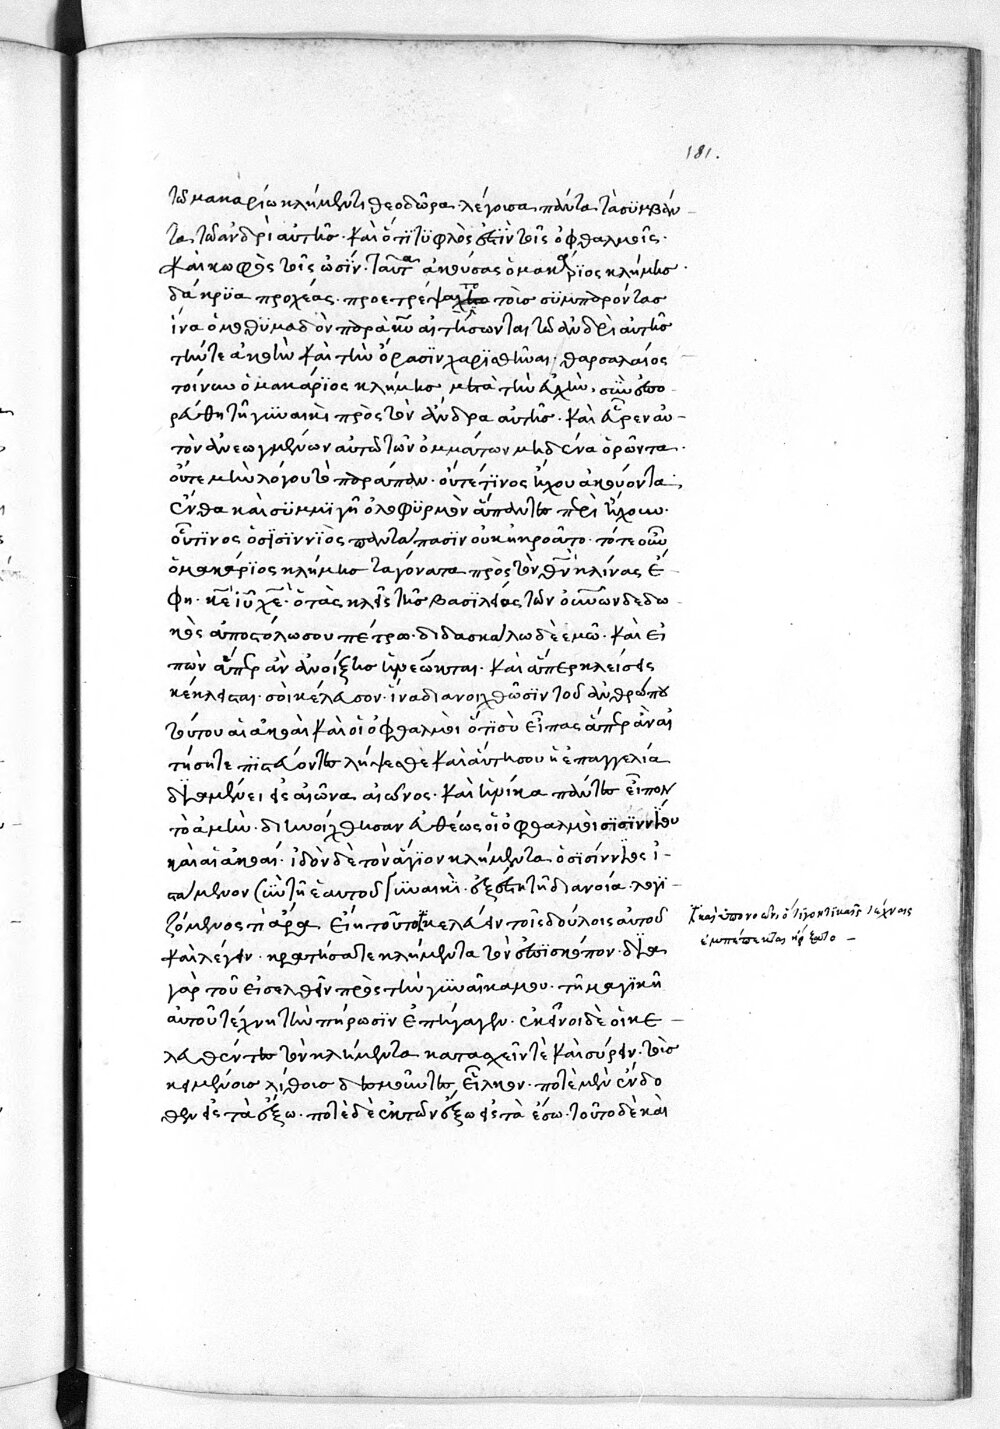 181.
τῶ μακαρίω κλήμεντι θεοδώρα. λέγουσα πάντα τὰ συμβάν
τα τῶ ἀνδρὶ αὐτῆς. καὶ ὅτι τυφλὸς ἐστὶν τοῖς ὀφθαλμοῖς.
καὶ κωφὸς τοῖς ὠσίν. ταῦτα ἀκούσας ὁ μακάριος κλήμης.
δάκρυα προχέας. προετρέψατο τοῖς συμπαροῦντας
ἵνα ὁμοθυμαδὸν παρὰ θυ αἰτήσωνται τῶ ἀνδρὶ αὐτῆς
τήν τε ἀκοὴν καὶ τὴν ὅρασιν χαρισθῆναι. θαρσαλαίος
τοίνυν ὁ μακάριος κλήμης μετὰ τὴν εὐχὴν, συν επο
ρεύθη τῆ γυναικὶ πρὸς τὸν ἄνδρα αὐτῆς. καὶ εὗρεν αὐ-
τὸν ἀνεωγμένων αὐτῶ τῶν ὀμμάτων μηδένα ὁρῶντα.
οὔτε μὴν λόγου τὸ παράπαν. οὔτε τινος ἤχου ἀκούοντα,
ἔνθα καὶ συμμιγῆ ὀλοφυρμὸν ἅπαντες περιήχουν.
οὗτινος ὁ σισίννιος πανταπασιν οὐκ ἠκροᾶτο. τότε οὖν
ὁ μακάριος κλήμης τα γόνατα πρὸς τὸν θν κλίνας ἔ-
φη. κε ιυ χε. ὁ τὰς κλεῖς τῆς βασιλείας τῶν οὐνων δεδω
κὼς ἀποστόλω σου πέτρω. διδασκάλω δὲ ἐμῶ. καὶ εἰ
πὼν ἅπερ ἂν ἀνοίξης ἠνεώκται. καὶ ἅπερ κλείσεις
κέκλεισται. σὺ κέλευσον. ἵνα διανοιχθῶσιν τοῦ ἀνθρώπου
τούτου αἱ ἀκοαὶ καὶ οἱ ὀφθαλμοὶ ὅτι σὺ εἶπας ἅπερ ἂν αἰ
τήσητε πιστεύοντες λήψεσθε καὶ αὕτη σου ἡ ἐπαγγελία
διαμένει εἰς αἰῶνα αἰωνος. καὶ ἡνίκα πάντες εἶπον
τὸ ἀμήν. διηνοίχθησαν εὐθέως οἱ ὀφθαλμοὶ σισιννίου
καὶ αἱ ἀκοαί. ἰδὼν δὲ τὸν ἅγιον κλήμεντα ὁ σισίννιος ἱ-
στάμενον σὺν τῆ ἑαυτοῦ γυναικὶ. ἐξέστη τῆ διανοία. λογι-
ζόμενος τί ἄρα εἴη τοῦτο κελεύειν τοῖς δούλοις αὐτοῦ
καὶ λέγειν. κρατήσατε κλήμεντα τὸν ἐπίσκοπον. διὰ
γὰρ τοῦ εἰσελθεῖν πρὸς τὴν γυναῖκα μου. τῆ μαγικῆ
αὐτοῦ τέχνη τὴν πήρωσιν ἐπήγαγεν. ἐκεῖνοι δὲ οἱ κε-
λευθέντες τὸν κλήμεντα κατασχεῖν τὲ καὶ σύρειν. τοῖς
κειμένοις λίθοις δεσμοῦντες, εἷλκον. ποτὲ μὲν ἔνδο
θεν εἰς τὰ ἔξω. ποτὲ δὲ ἐκ τῶν ἔξω εἰς τὰ ἔσω. τοῦτο δὲ καὶ
καὶ ὑπονοῶν ὅτι γοητικαῖς τέχναις
ἐμπέπεκται ἤρξατο –